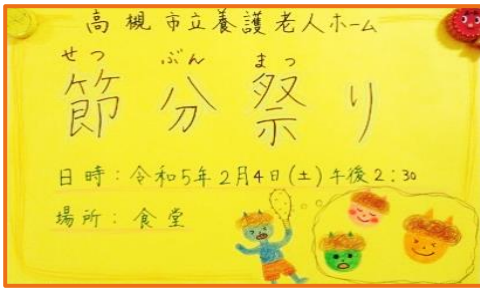 高槻市立養護老人ホーム
せつ ぶん まつ
節分祭り
日時：令和5年2月4日(土)午後2:30
場所：食堂